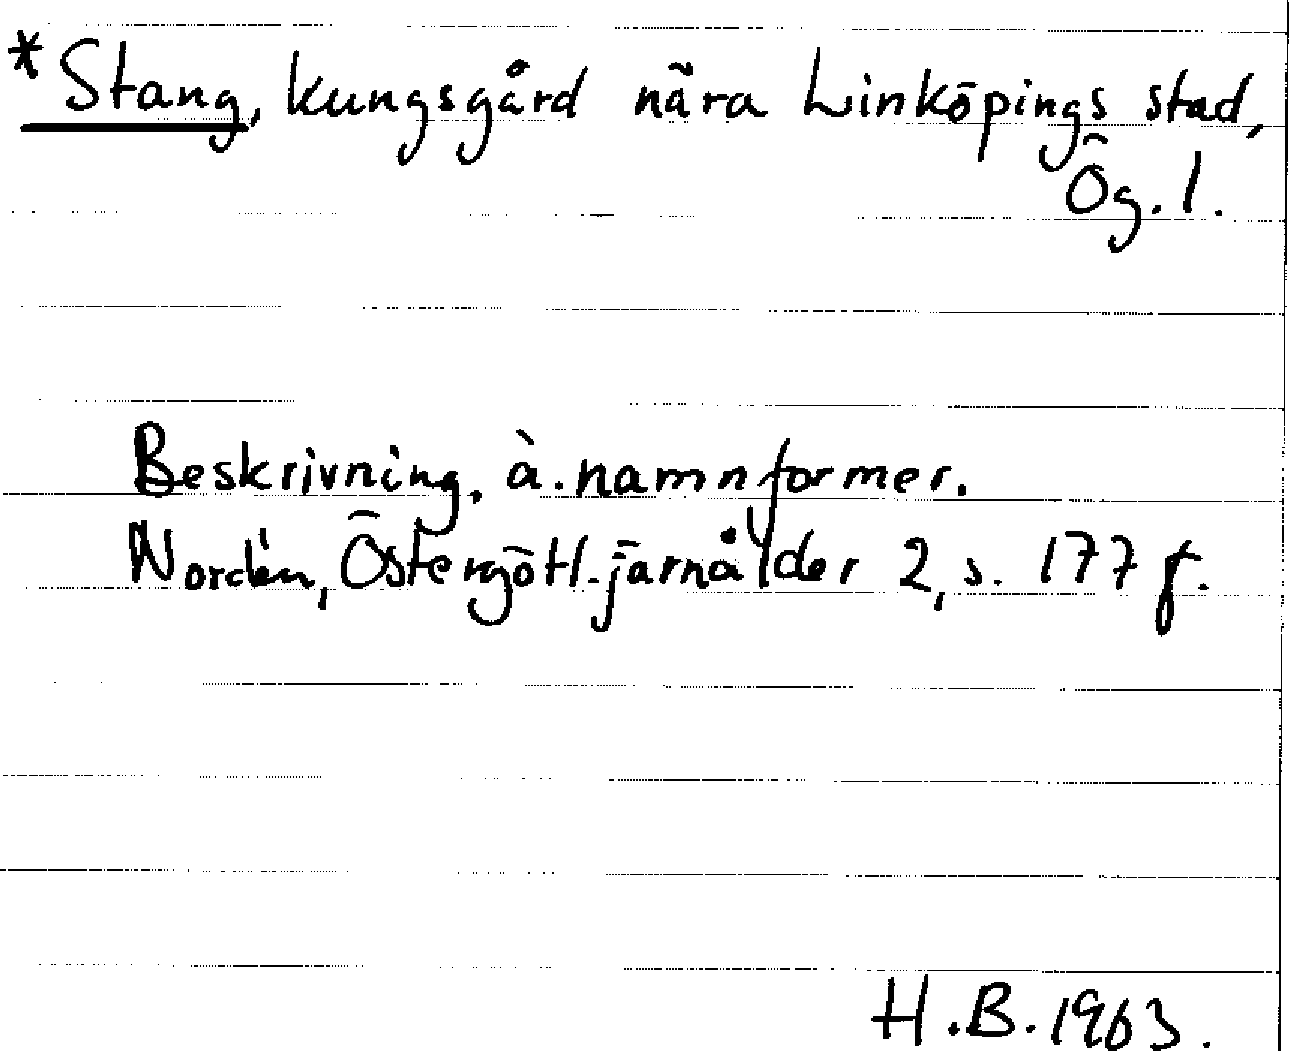 *Stang, kungsgård nära Linköpings stad,
Ög. l.
Beskrivning, ä. namnformer.
Nordén, Östergötl. järnålder 2, s. 177 f.
H.B. 1963.